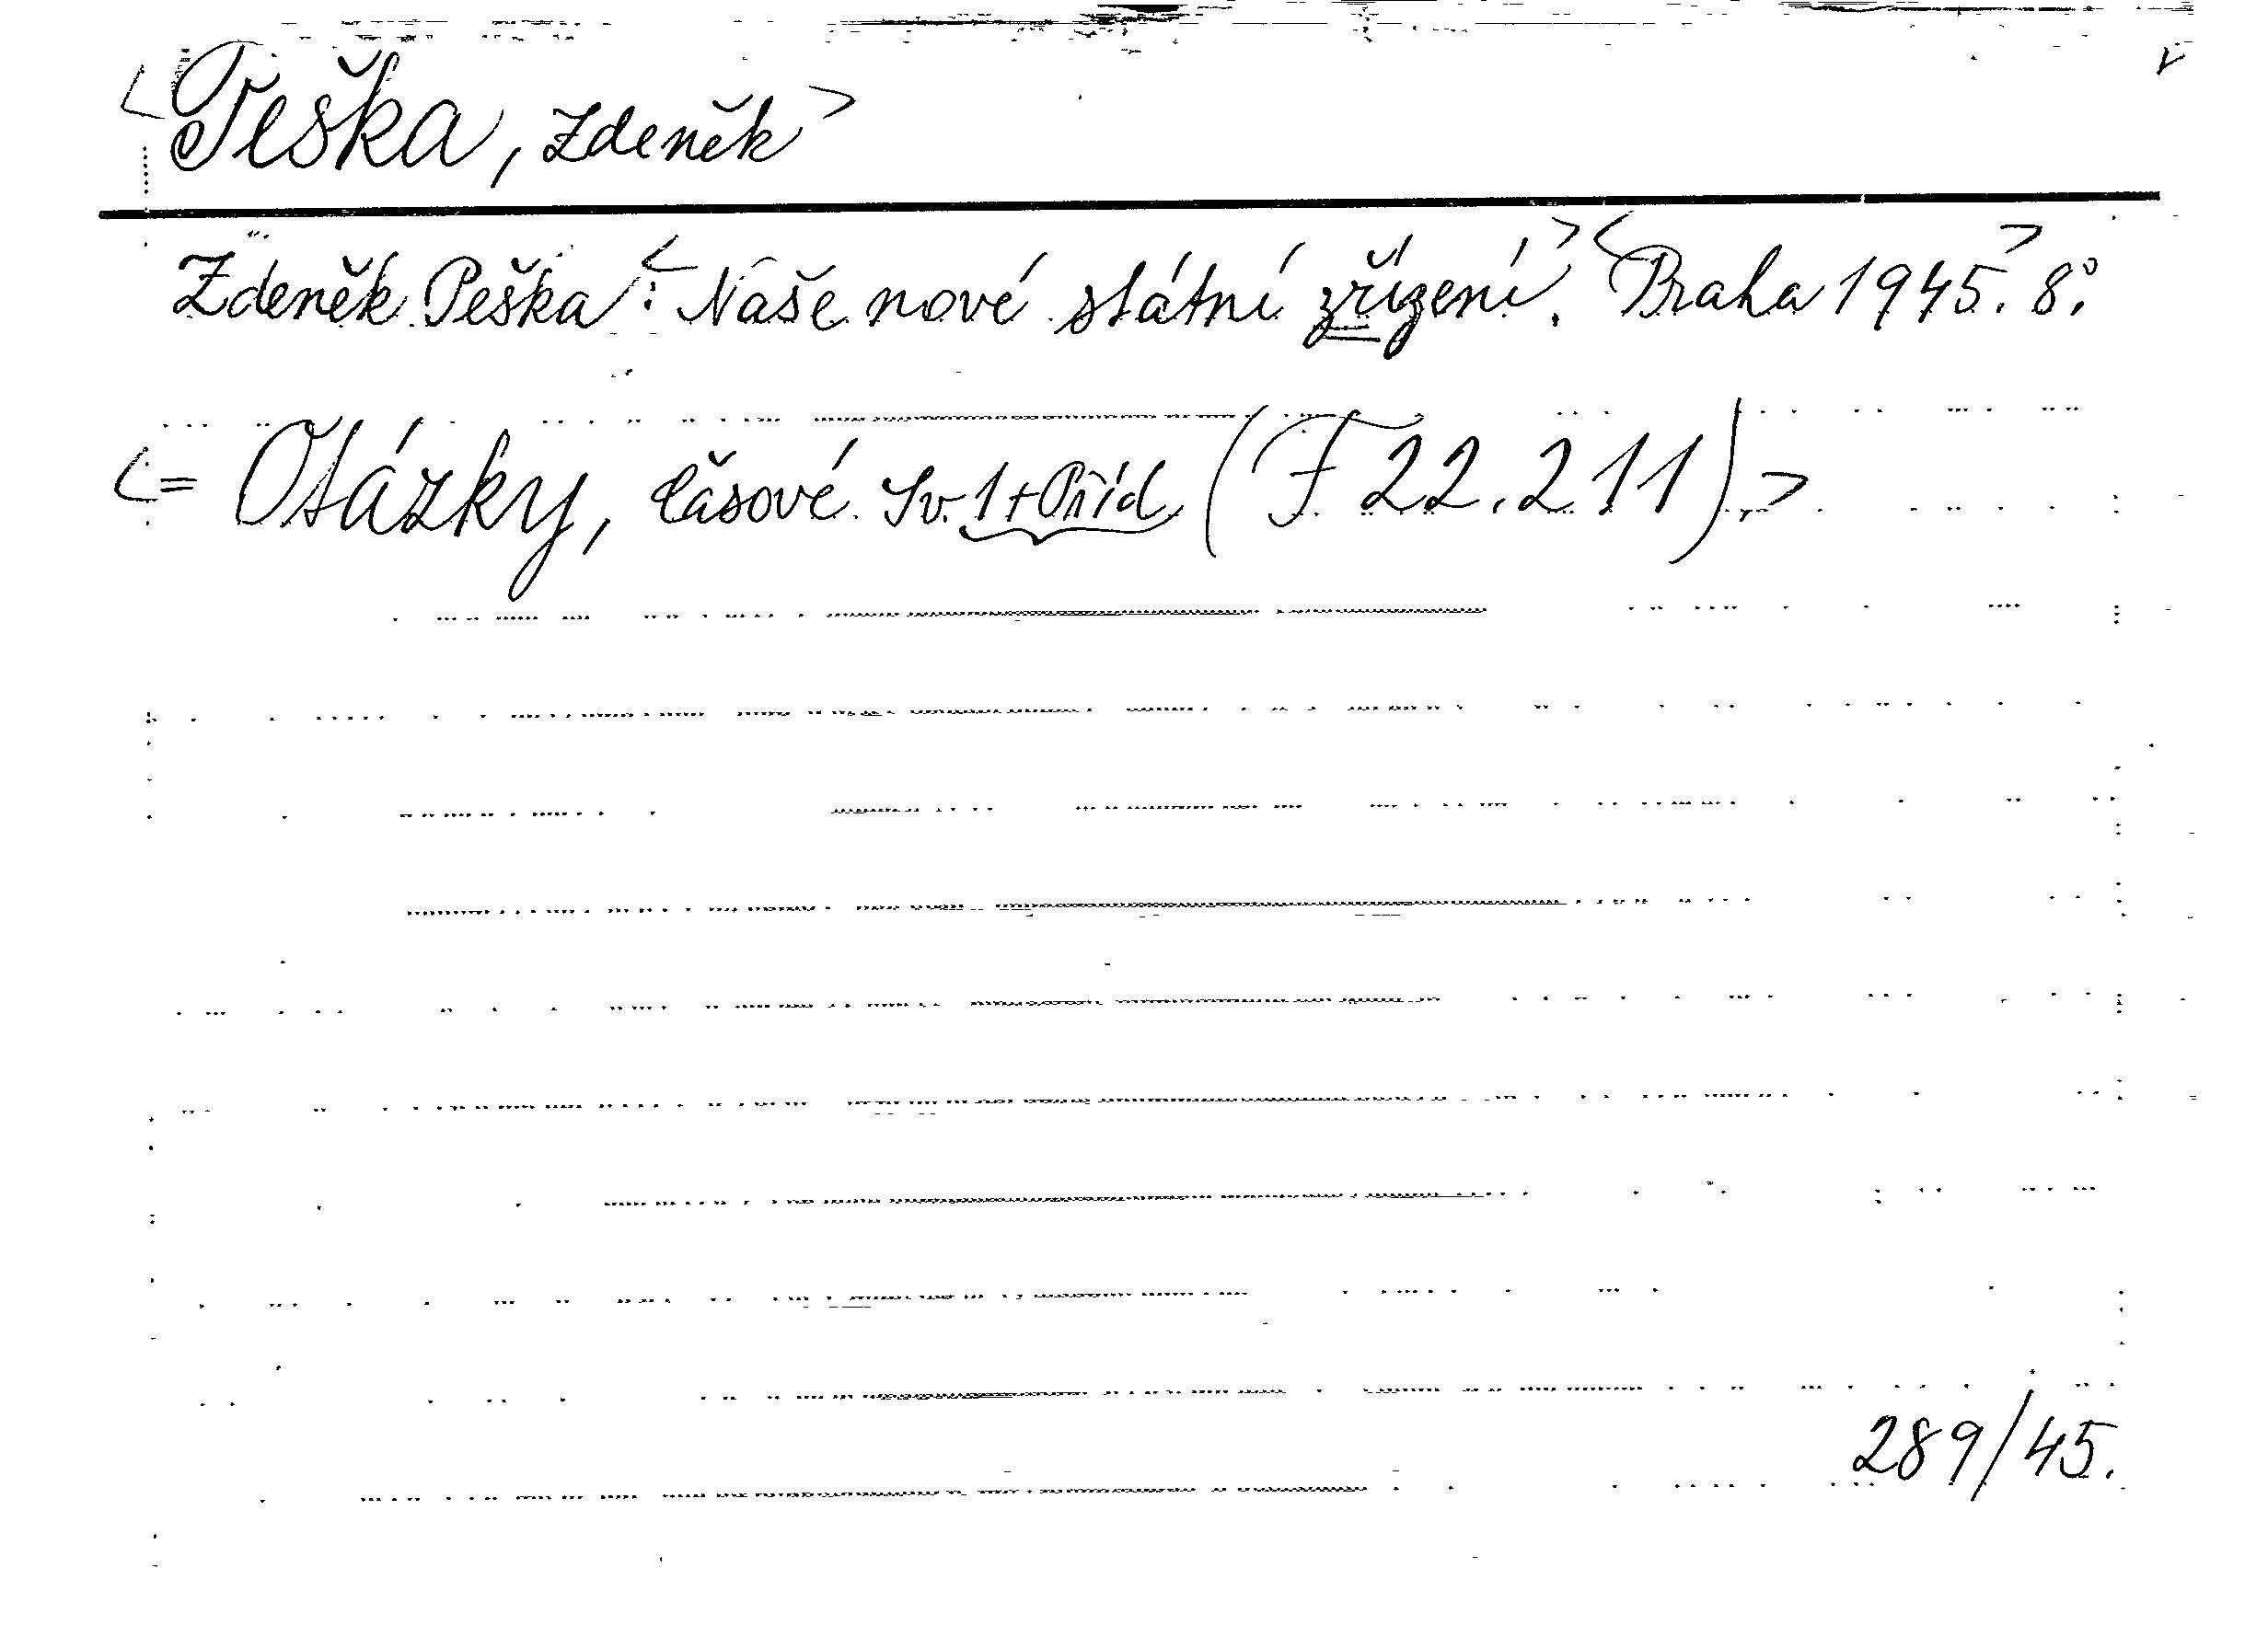 <Peška, Zdeněk>
Zdeněk Peška <: Naše nové státní zřízení.> <Praha 1945.> 8°.
<= Otázky, časové. Sv. 1+Příd (F 22.211).>
289/45.